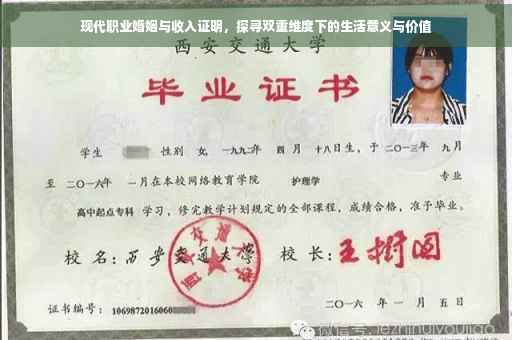 现代职业婚姻与收入证明，探寻双重维度下的生活意义与价值
西安交通大学
毕业证书
学生 性别 女，一九九二年 四 月 十八日生，于 二〇一三年 九月
至 二〇一六年 一月在本校网络教育学院 护理学 专业
高中起点专科 学习，修完教学计划规定的全部课程，成绩合格，准予毕业。
校 名：西安交通大学 校 长：王树国
西安交通大学
证书编号：1069872016060
二〇一六 年 一 月 五 日
微信号: jezhihuiyoujiao